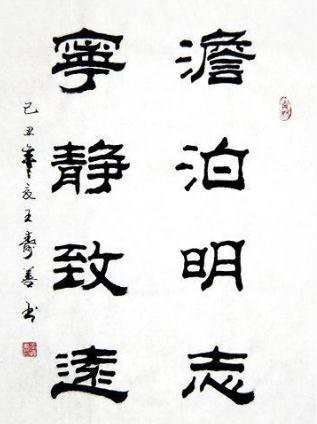 澹泊明志
寧静致遠
己丑年夏王壽善书